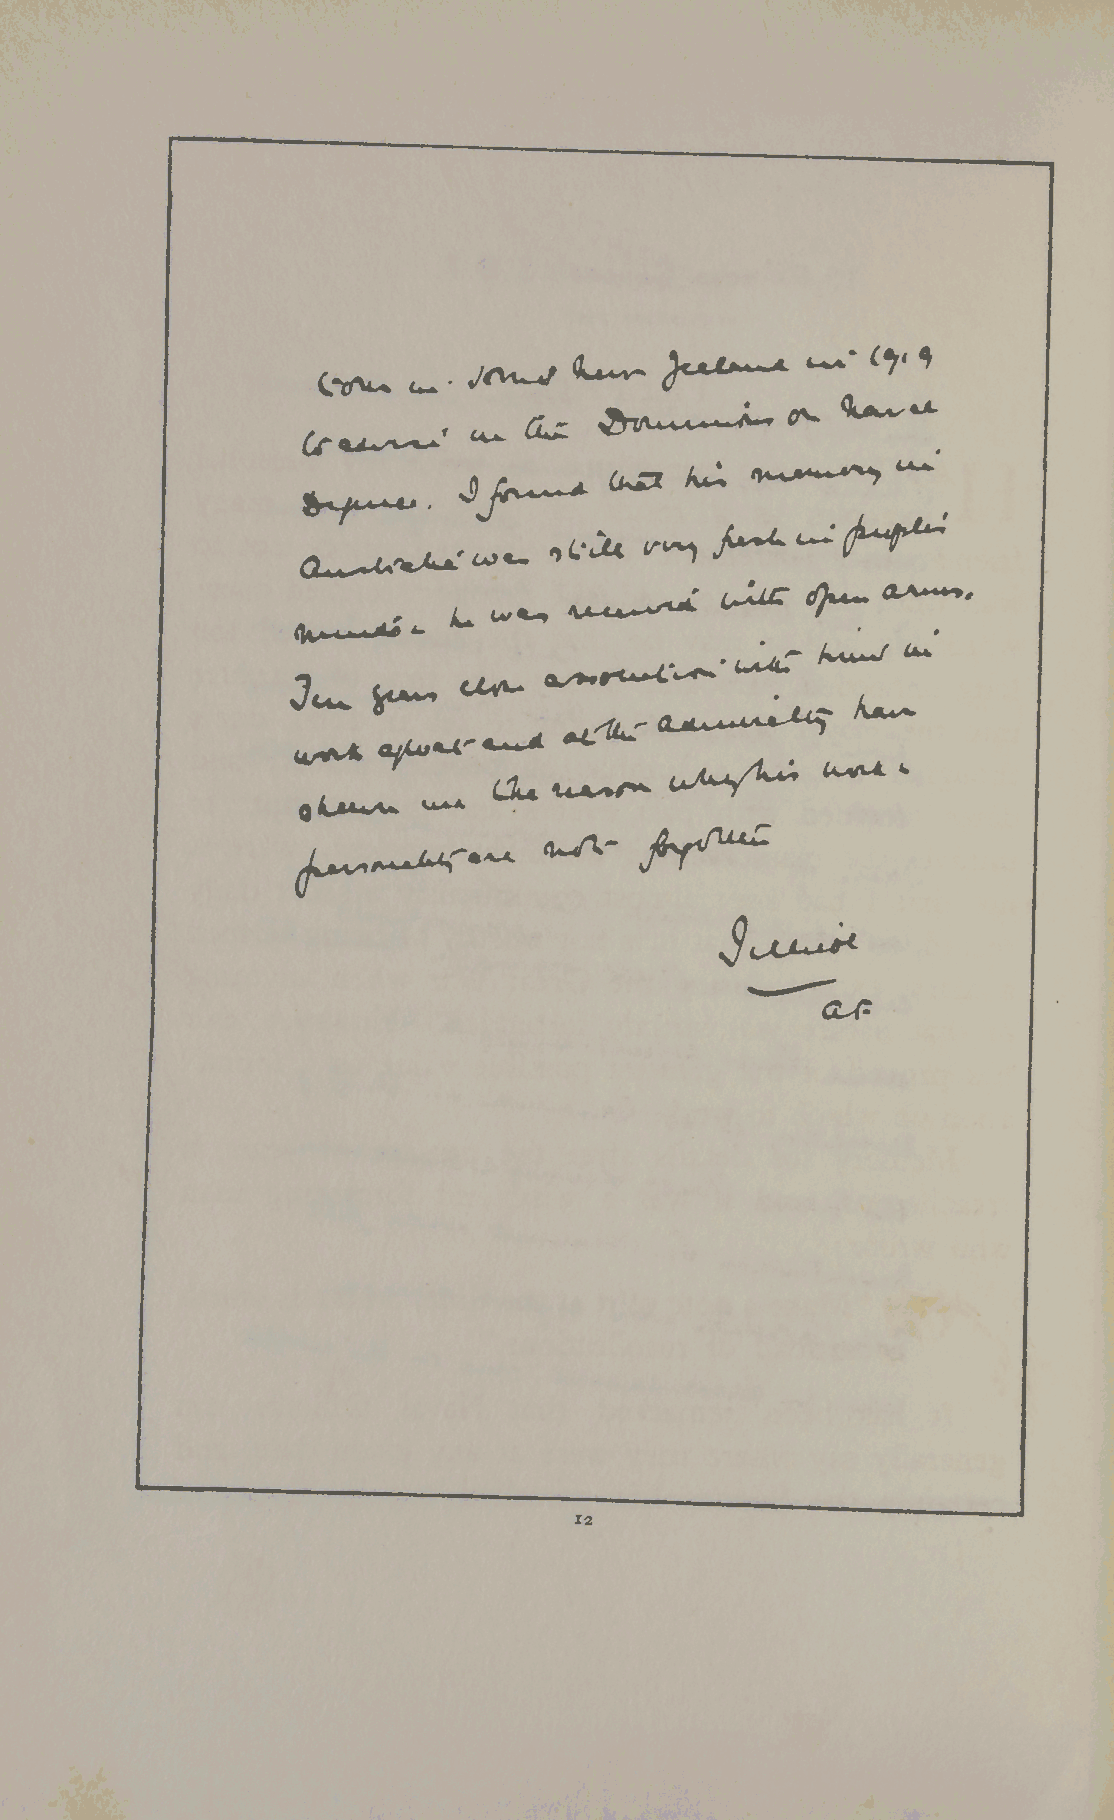 New Zealand in 1919
to advise in the Dominions on Naval
Defence. I found that his memory in
Australia was still very fresh in people's
minds & he was received with open arms.
Ten years close association with him in
work afloat and at the Admiralty have
shewn me the reason why his work &
personality are not forgotten
Jellicoe
AF
12